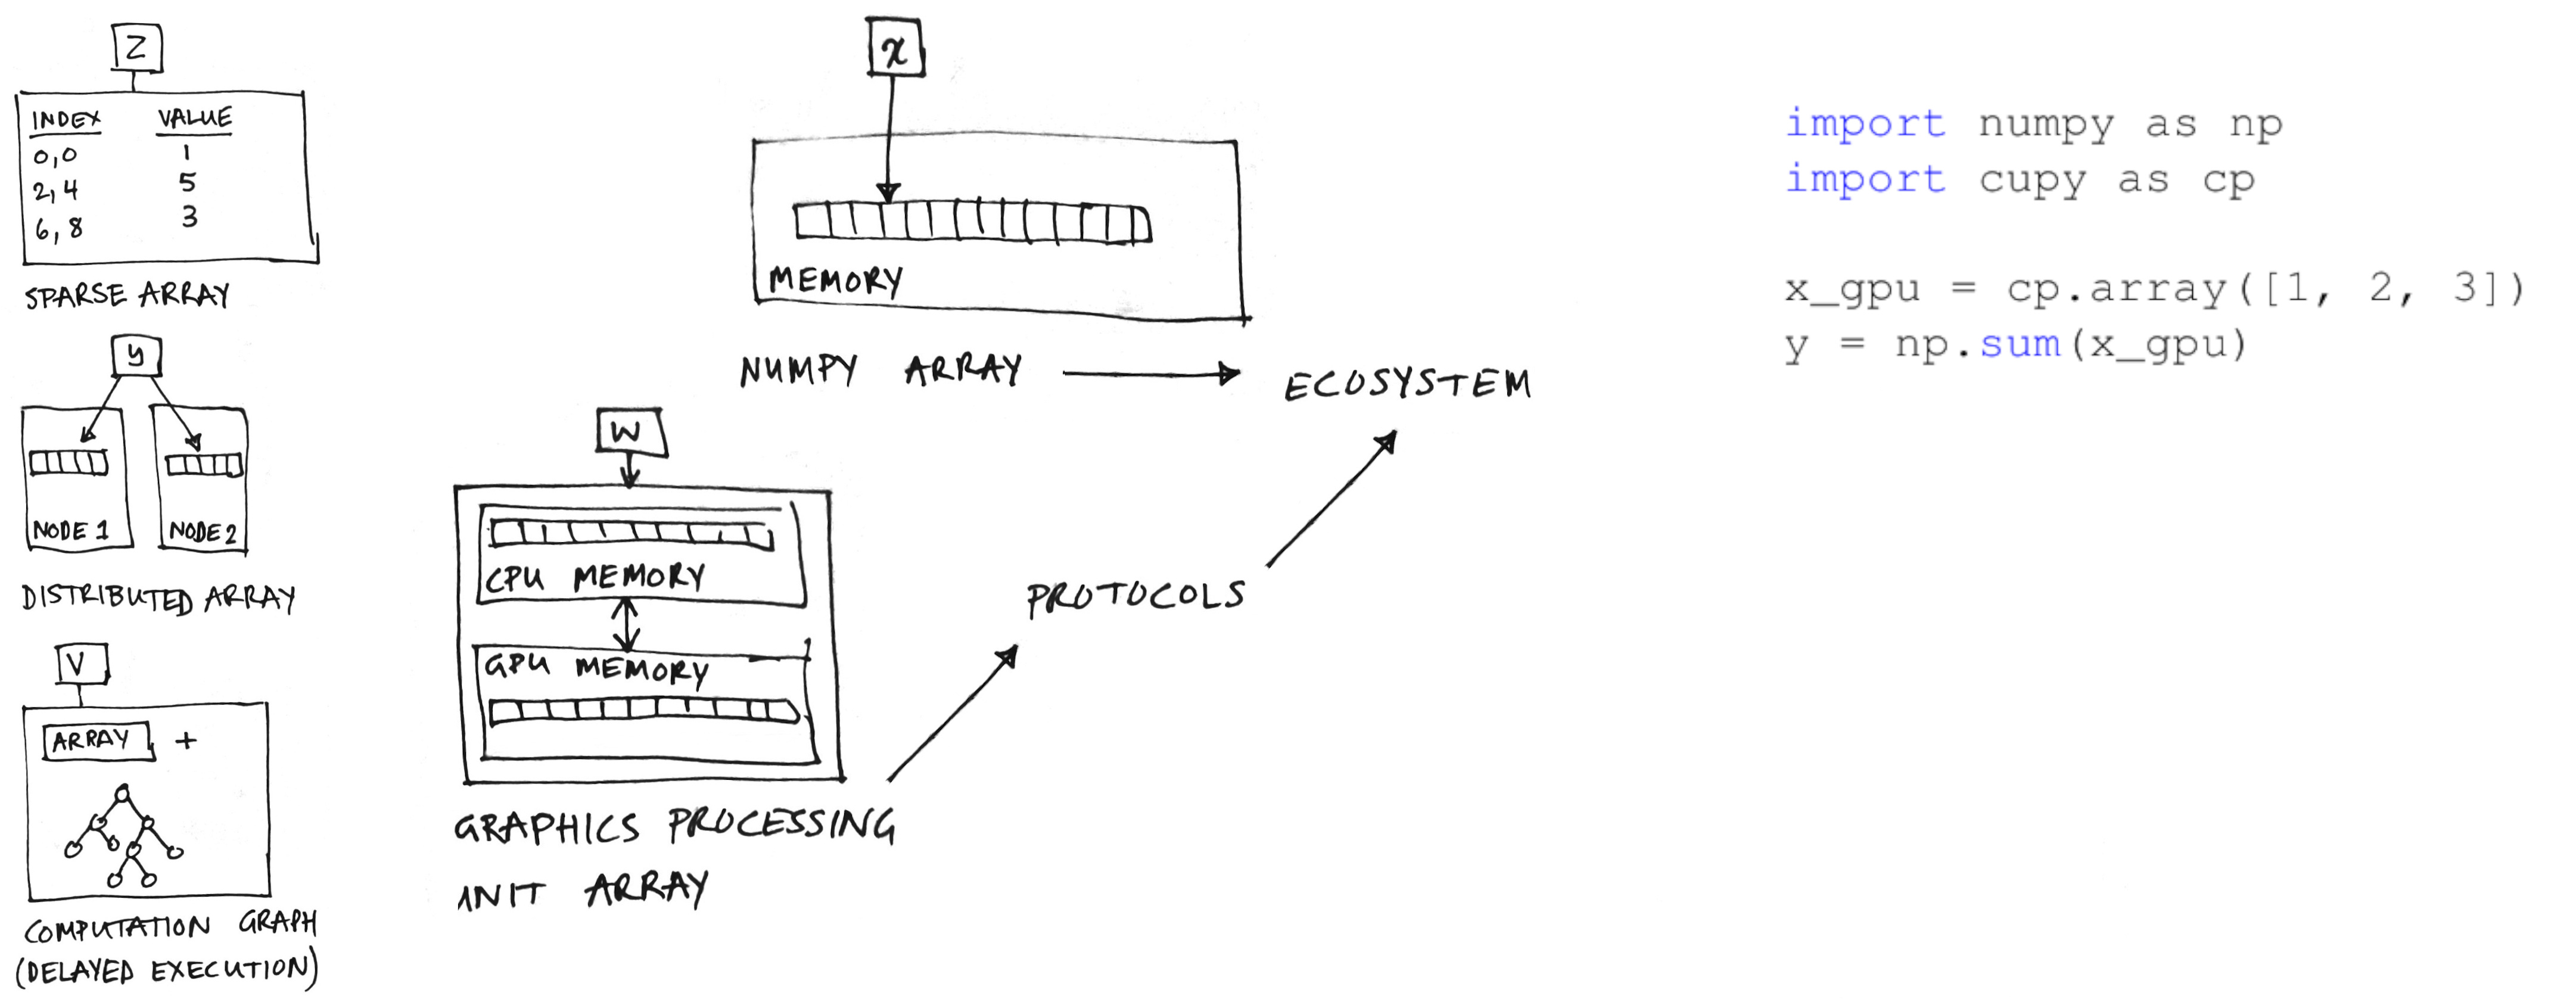 Z
INDEX VALUE
0,0 1
2,4 5
6,8 3
SPARSE ARRAY
y
NODE 1 NODE 2
DISTRIBUTED ARRAY
V
ARRAY +
COMPUTATION GRAPH
(DELAYED EXECUTION)
x
MEMORY
NUMPY ARRAY
ECOSYSTEM
W
CPU MEMORY
GPU MEMORY
GRAPHICS PROCESSING
UNIT ARRAY
PROTOCOLS
import numpy as np
import cupy as cp
x_gpu = cp.array([1, 2, 3])
y = np.sum(x_gpu)